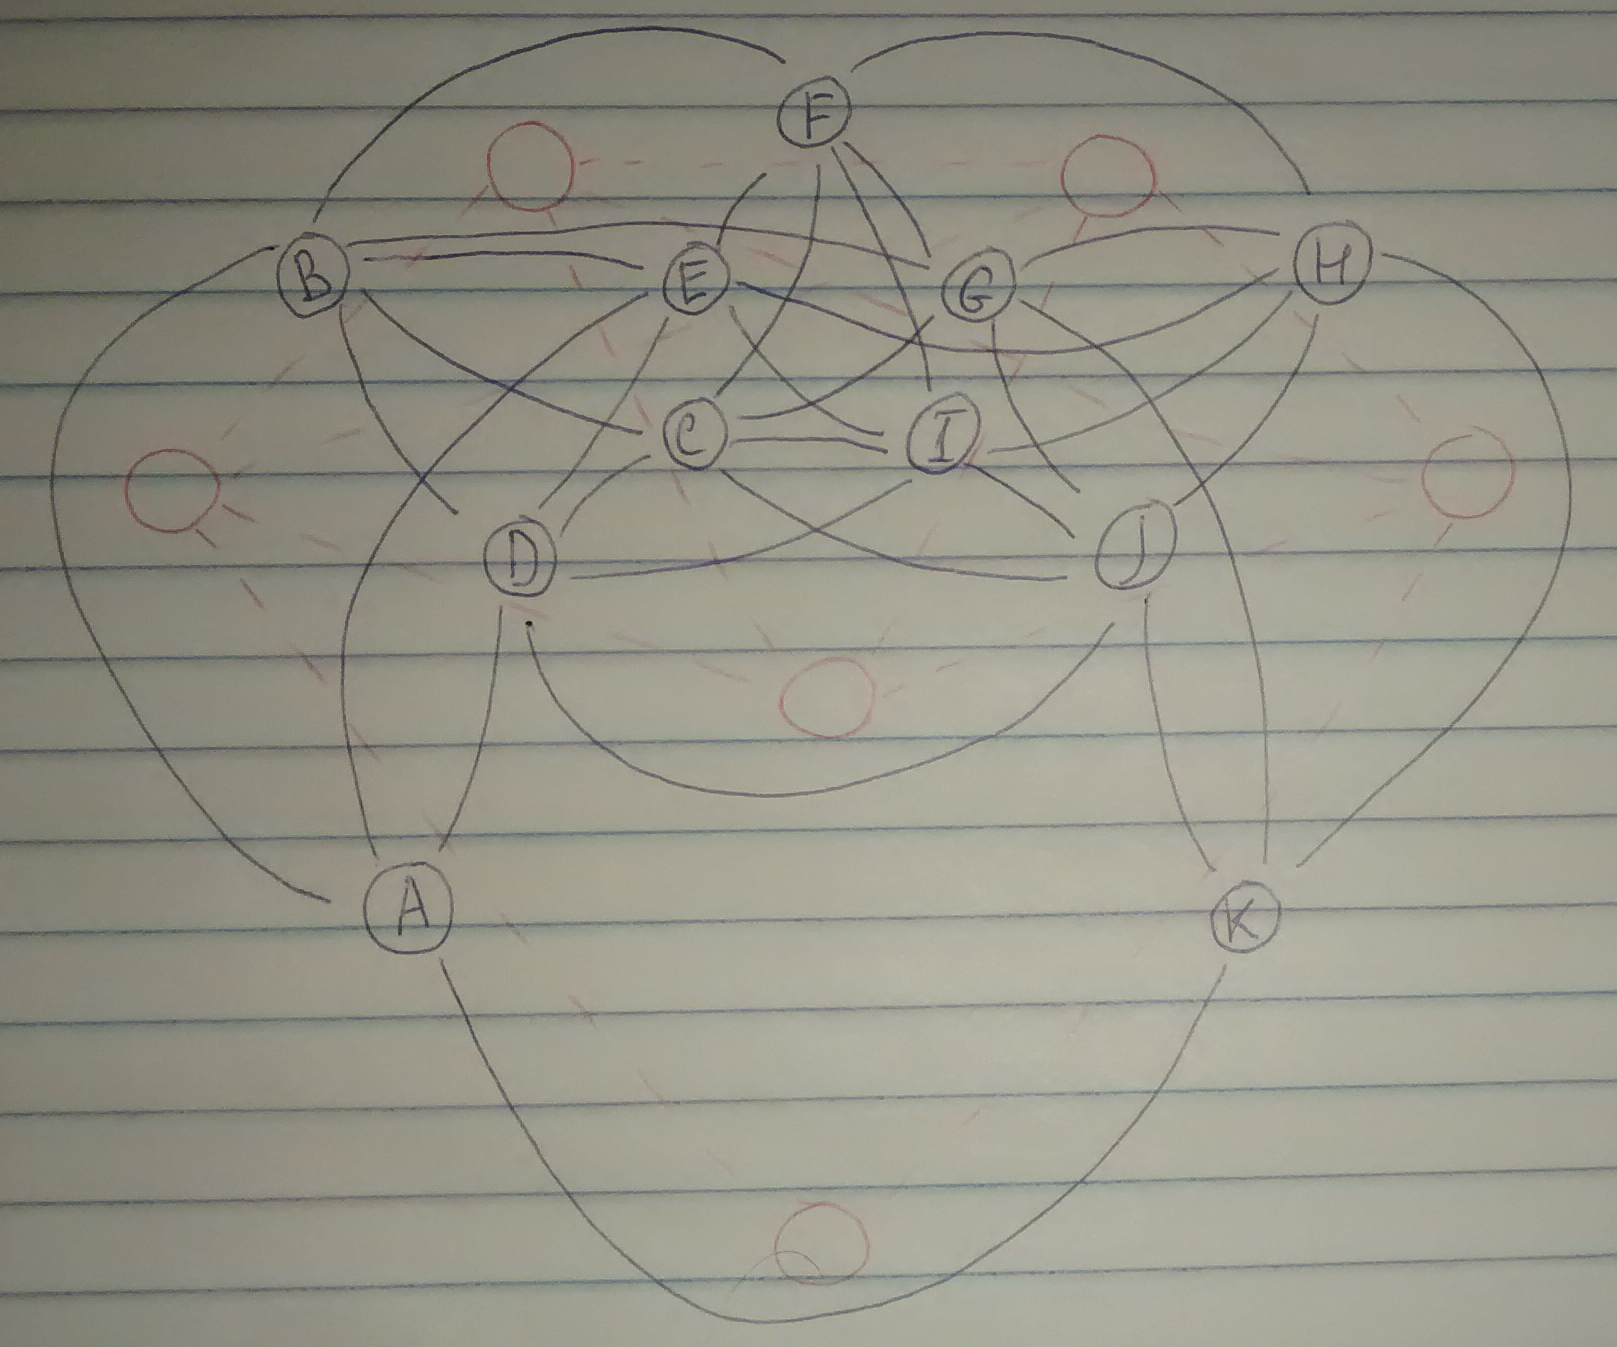 F
B E G H
C I
D J
A K